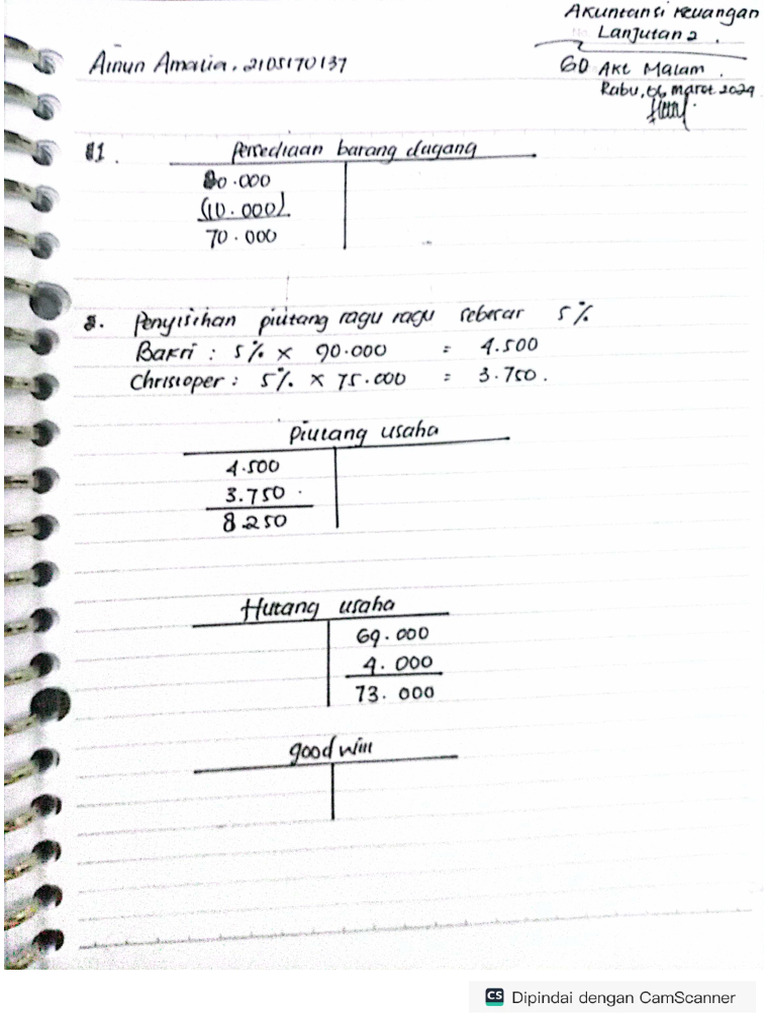 Akuntansi Keuangan
Lanjutan 2.
Ainun Amalia. 2105170137
6D Akt Malam.
Rabu, 06 maret 2024
1. Persediaan barang dagang
80.000
(10.000)
70.000
2. Penyisihan piutang ragu ragu sebesar 5%
Bakri : 5% × 90.000 = 4.500
Christoper : 5% × 75.000 = 3.750.
Piutang usaha
4.500
3.750
8.250
Hutang usaha
69.000
4.000
73.000
goodwill
CS Dipindai dengan CamScanner